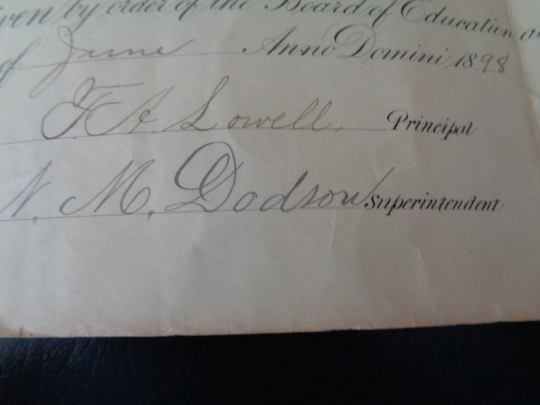 by order of the Board of Education
of June Anno Domini 1898
F. A. Lowell. Principal
N. M. Dodson Superintendent